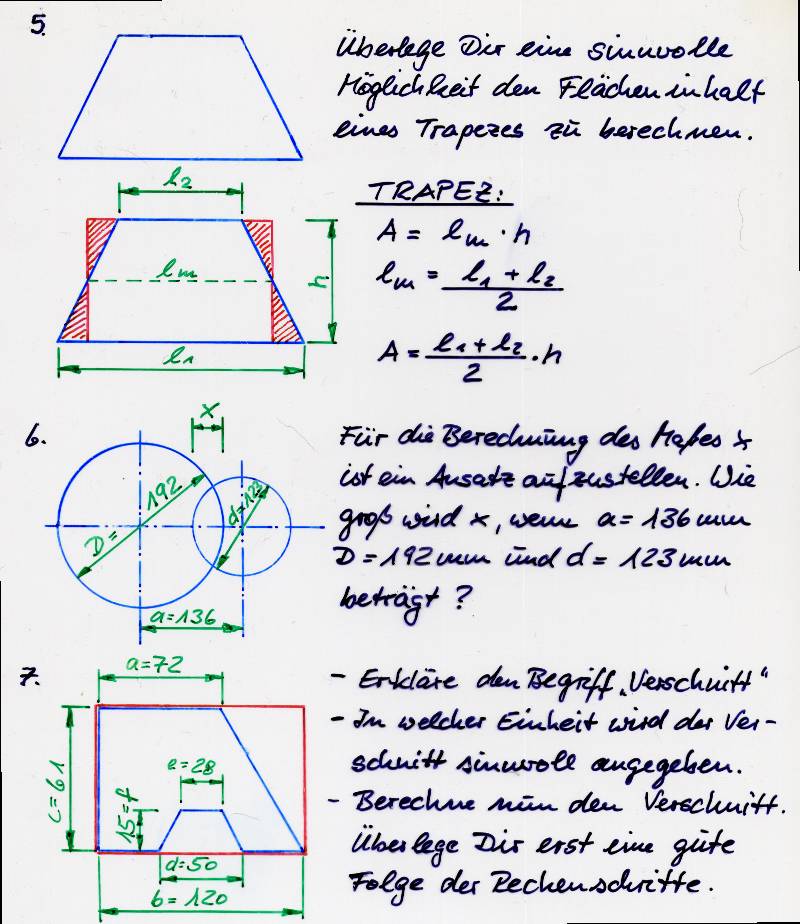 5.
Überlege Dir eine sinnvolle
Möglichkeit den Flächeninhalt
eines Trapezes zu berechnen.
l2
TRAPEZ:
A = lm · h
lm = l1 + l2
2
lm
h
l1
A = l1 + l2 · h
2
6.
x
Für die Berechnung des Maßes x
ist ein Ansatz aufzustellen. Wie
groß wird x, wenn a = 136 mm
D = 192 mm und d = 123 mm
beträgt ?
D = 192
d=123
a=136
7.
a=72
- Erkläre den Begriff „Verschnitt“
- In welcher Einheit wird der Ver-
schnitt sinnvoll angegeben.
- Berechne nun den Verschnitt.
Überlege Dir erst eine gute
Folge der Rechenschritte.
c=61
e=28
15=f
d=50
b=120